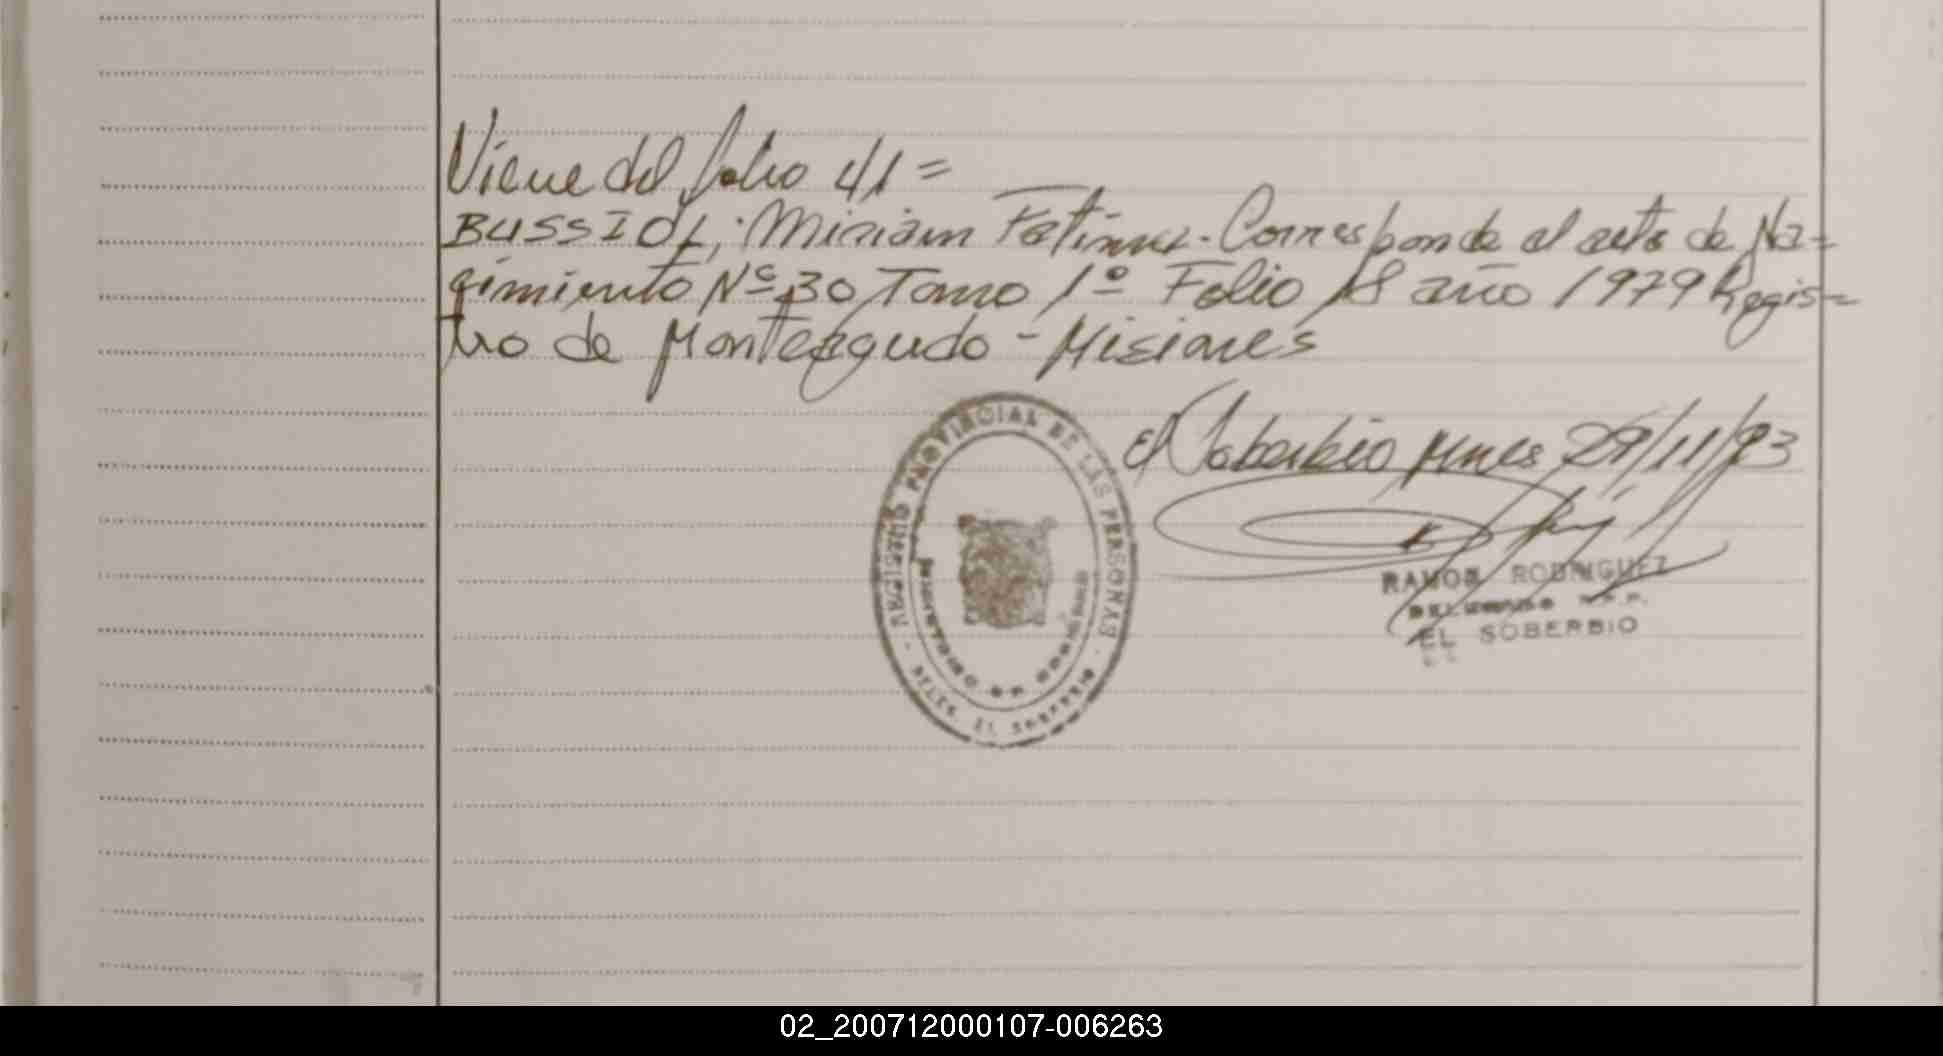 Viene del folio 41=
BUSSIOL, Miriam Fatima. Corresponde al acta de Na=
cimiento Nº 30 Tomo 1º Folio 18 año 1979 Regis=
tro de Monteagudo - Misiones
El Soberbio Mnes 29/11/93
REGISTRO PROVINCIAL DE LAS PERSONAS
MINISTERIO DE GOBIERNO
DELEG. EL SOBERBIO
RAMON RODRIGUEZ
DELEGADO R.P.P.
EL SOBERBIO
02_200712000107-006263